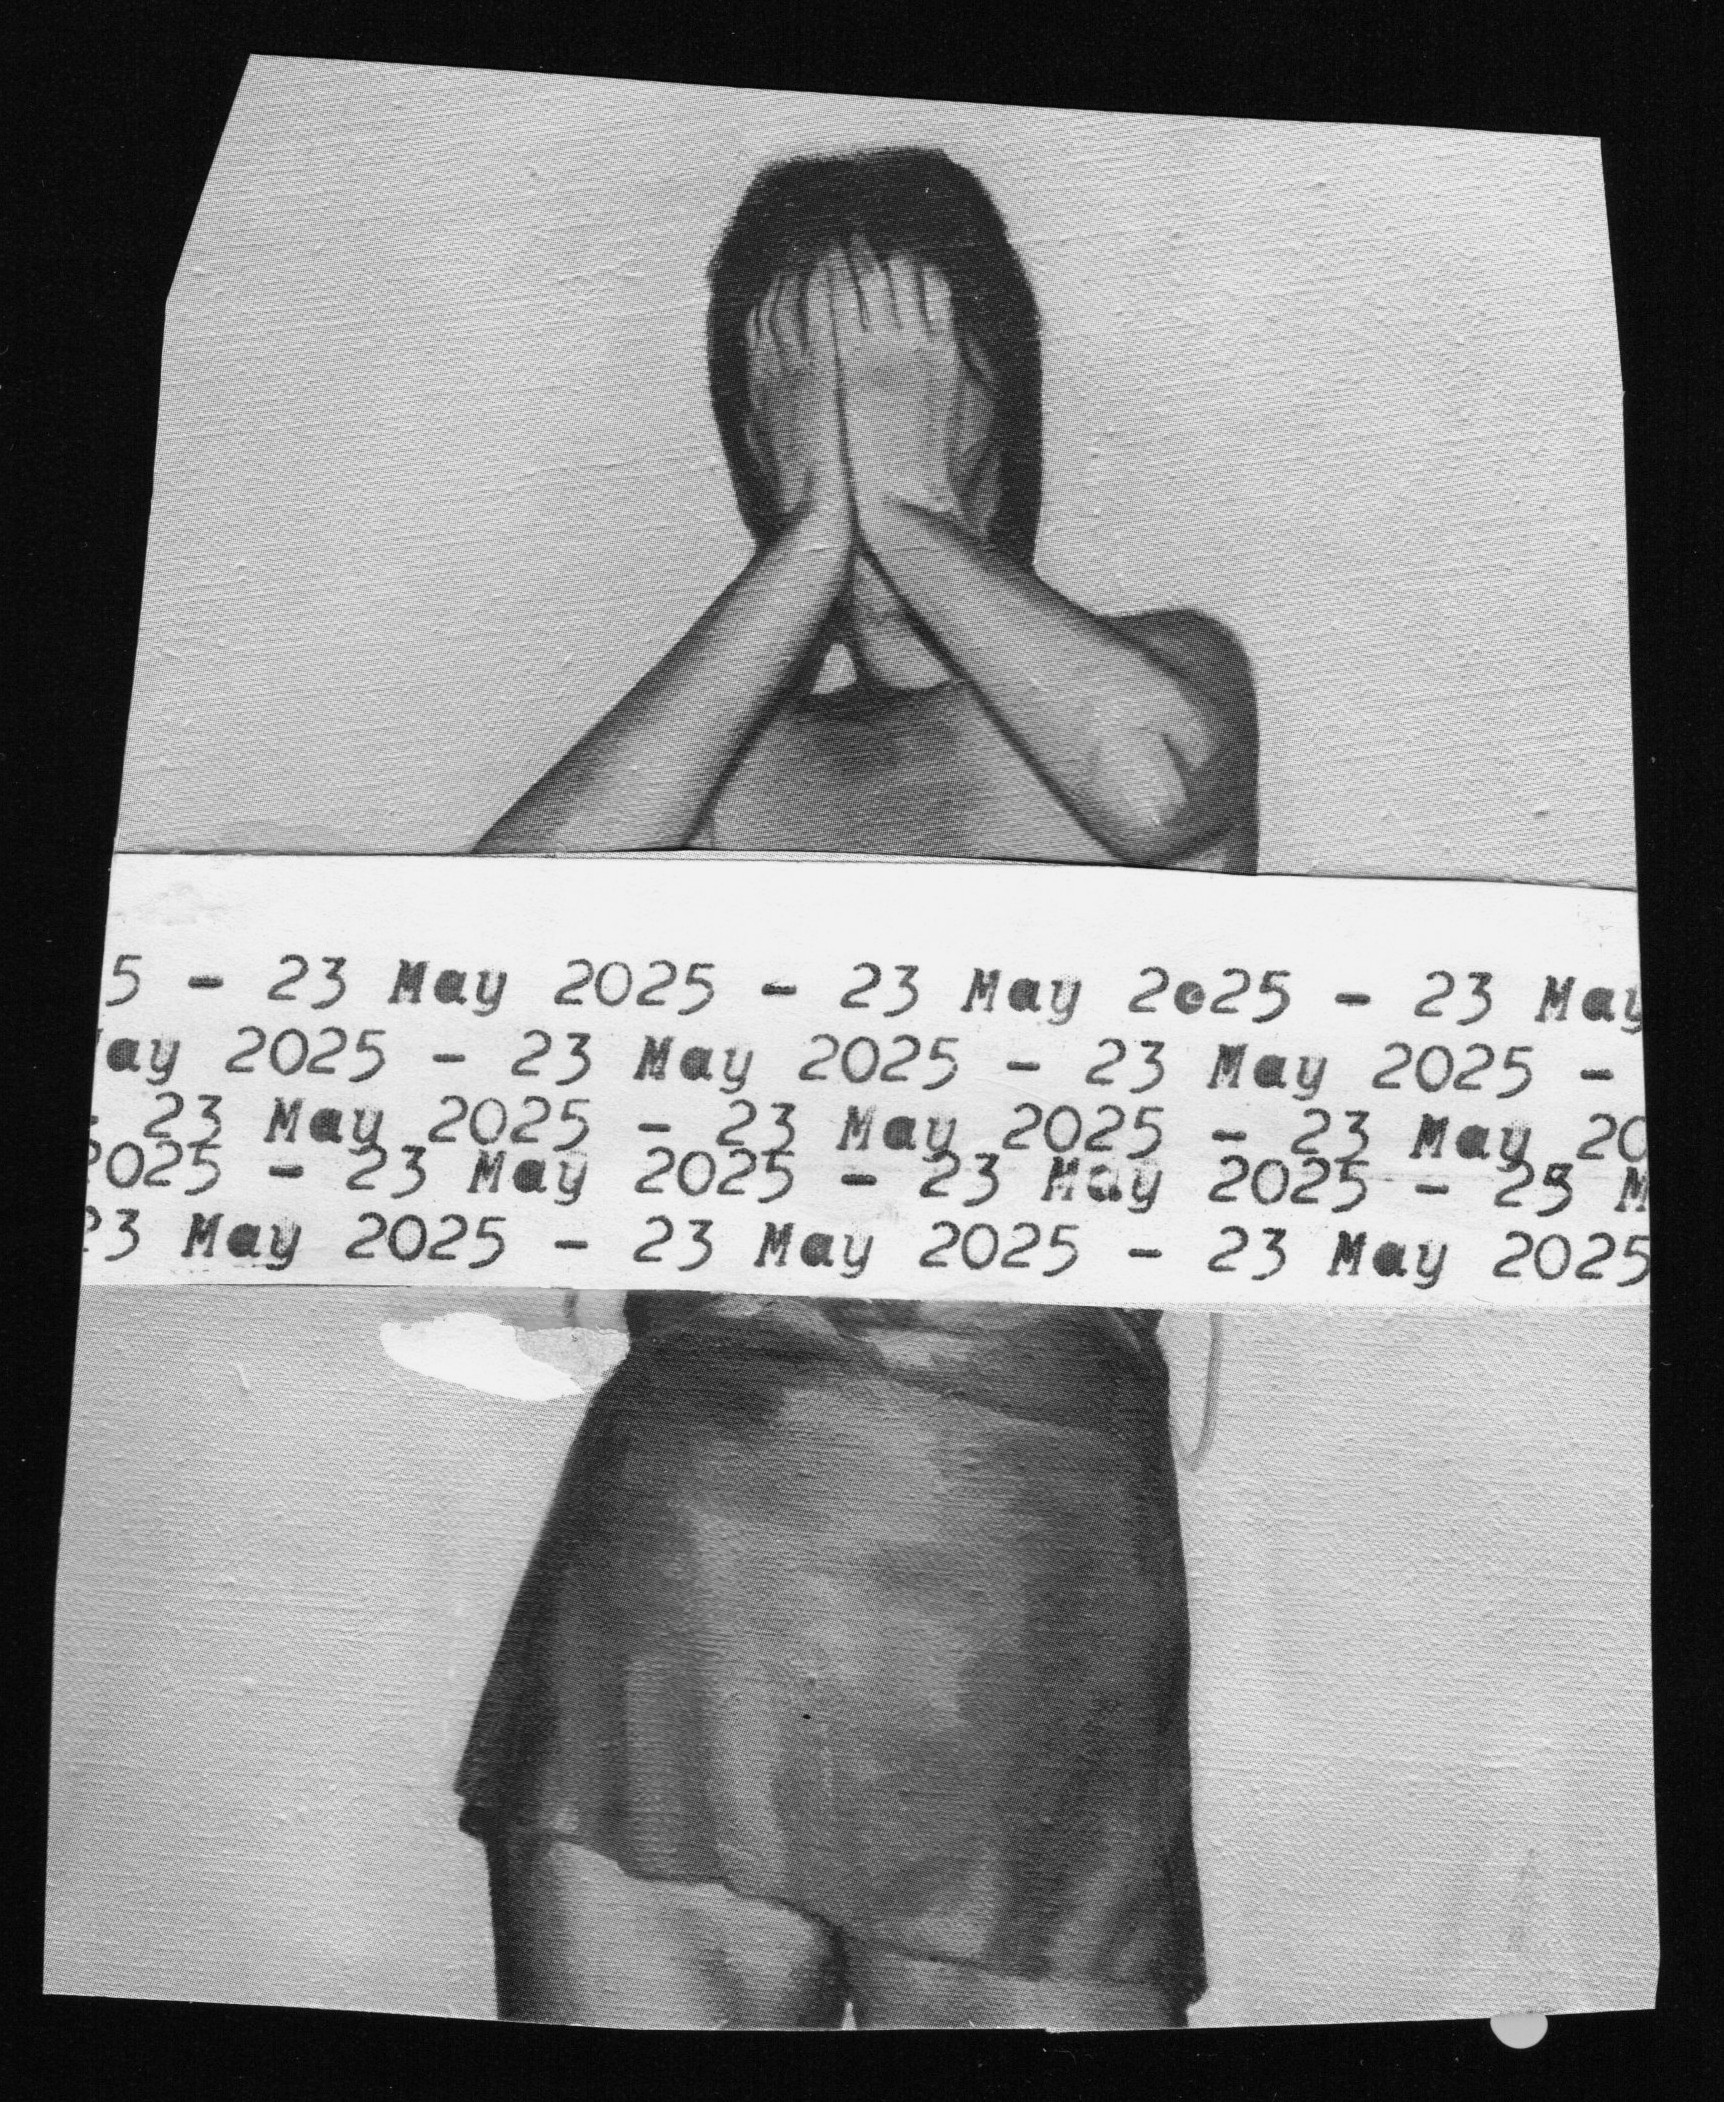 5 - 23 May 2025 - 23 May 2025 - 23 May
ay 2025 - 23 May 2025 - 23 May 2025 -
- 23 May 2025 - 23 May 2025 - 23 May 20
2025 - 23 May 2025 - 23 May 2025 - 23 M
23 May 2025 - 23 May 2025 - 23 May 2025